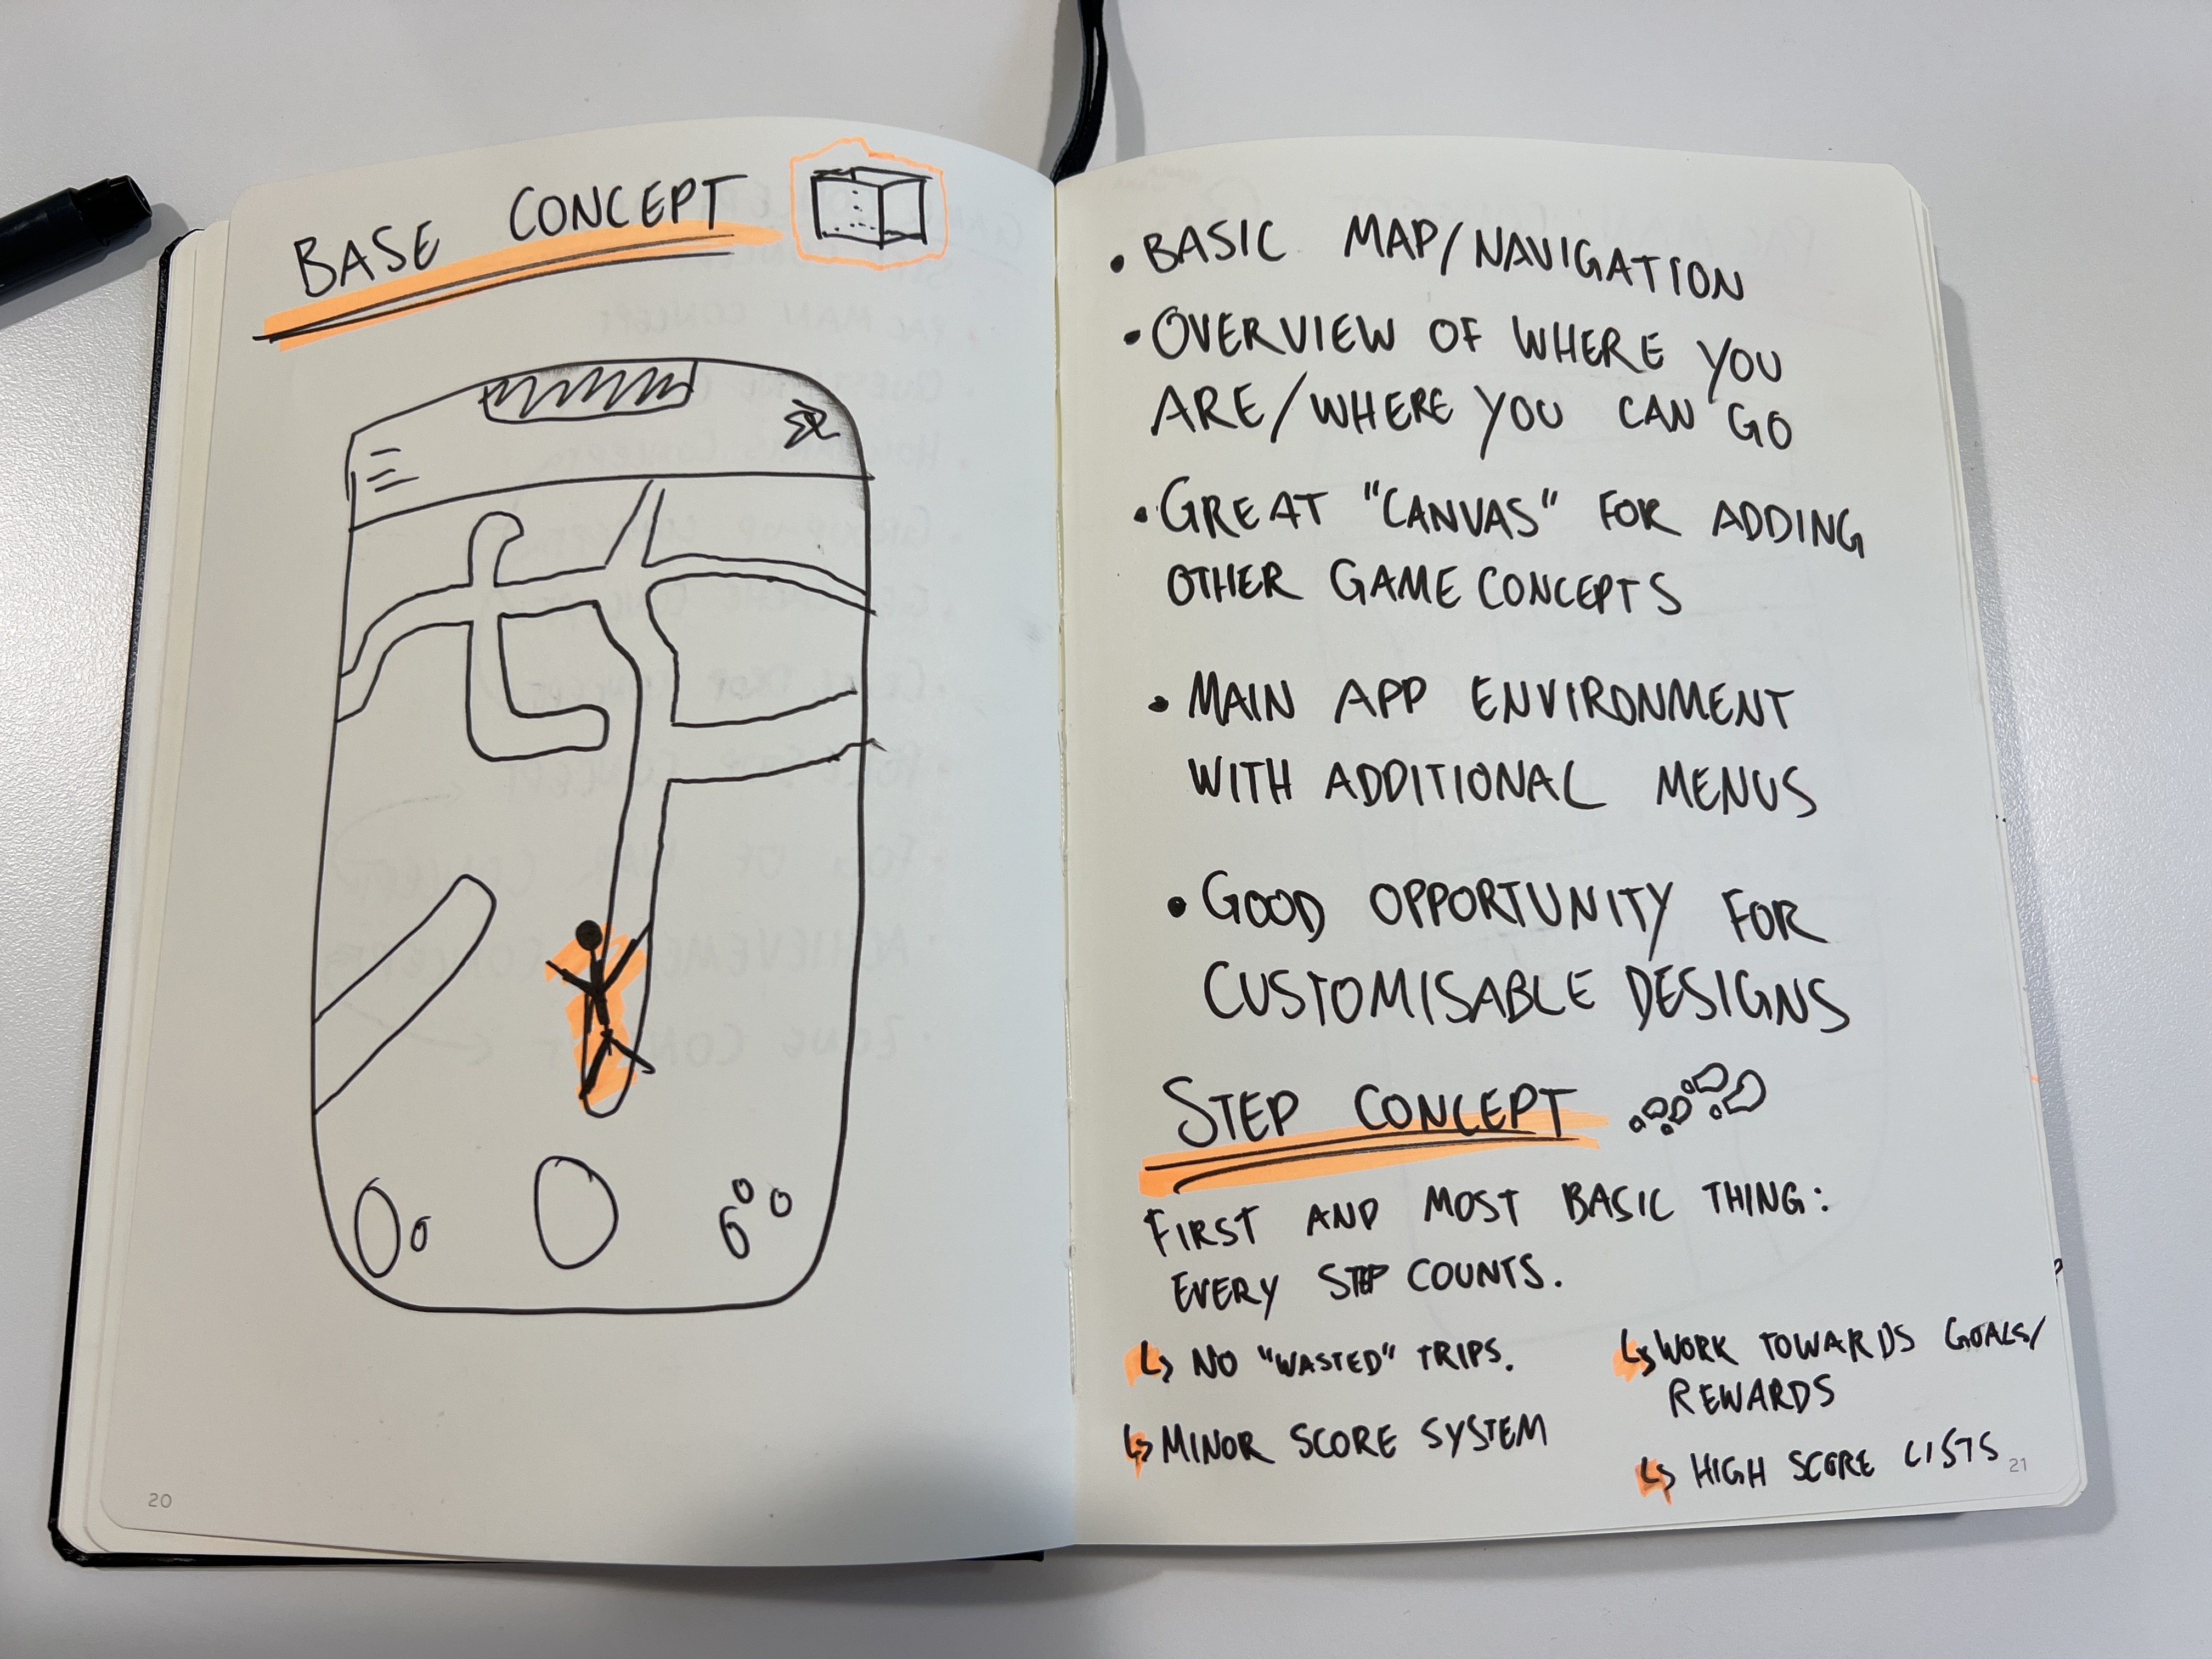 BASE CONCEPT
20
• BASIC MAP/NAVIGATION
• OVERVIEW OF WHERE YOU
ARE/WHERE YOU CAN GO
• GREAT "CANVAS" FOR ADDING
OTHER GAME CONCEPTS
• MAIN APP ENVIRONMENT
WITH ADDITIONAL MENUS
• GOOD OPPORTUNITY FOR
CUSTOMISABLE DESIGNS
STEP CONCEPT
FIRST AND MOST BASIC THING:
EVERY STEP COUNTS.
↳ NO "WASTED" TRIPS.
↳ MINOR SCORE SYSTEM
↳ WORK TOWARDS GOALS/
REWARDS
↳ HIGH SCORE LISTS
21